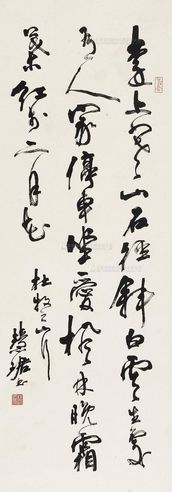 遠上寒山石徑斜白雲生處
有人家停車坐愛楓林晚霜
葉紅於二月花
杜牧之山行